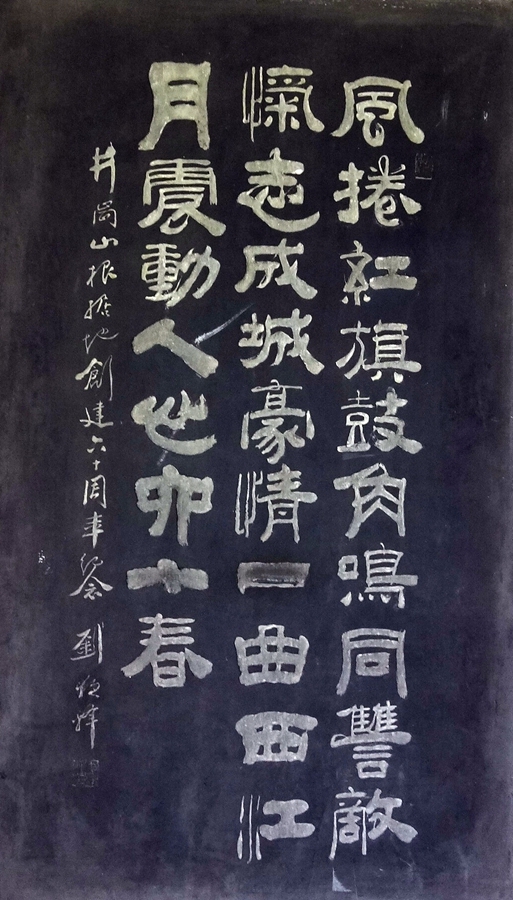 風捲紅旗鼓角鳴同讐敵
愾志成城豪情一曲西江
月震動人世十春
井岡山根據地創建六十周年紀念 劉輝